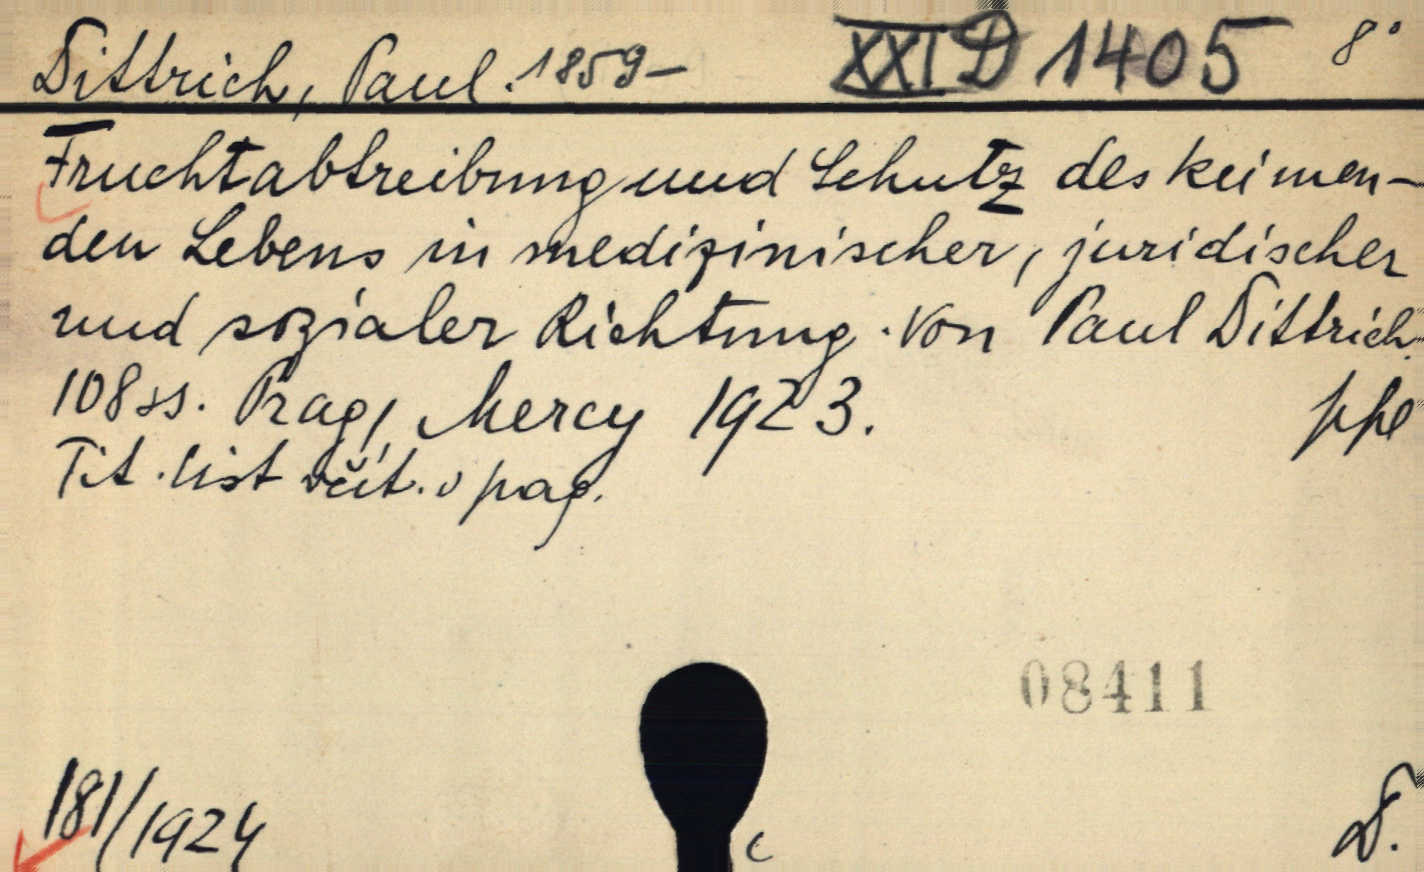 Dittrich, Paul. 1859– XXI D 1405 8°
Fruchtabtreibung und Schutz des keimen-
den Lebens in medizinischer, juridischer
und sozialer Richtung. Von Paul Dittrich.
108 ss. Prag, Mercy 1923. ppl
Tit. list včít. v pag.
08411
181/1924 c D.